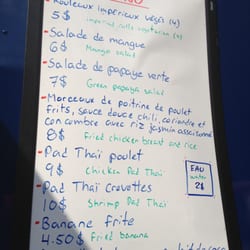 Rouleaux impériaux végés (4)
5$ imperial rolls vegetarian (4)
Salade de mangue
6$ Mango salad
Salade de papaye verte
7$ Green papaya salad
Morceaux de poitrine de poulet
frits, sauce douce chili, coriandre et
concombre avec riz jasmin assaisonné
8$ Fried chicken breast and rice
Pad Thaï poulet
9$ Chicken Pad Thaï
Pad Thaï Crevettes
10$ Shrimp Pad Thaï
EAU
water
2$
Banane frite
4.50$ Fried banana